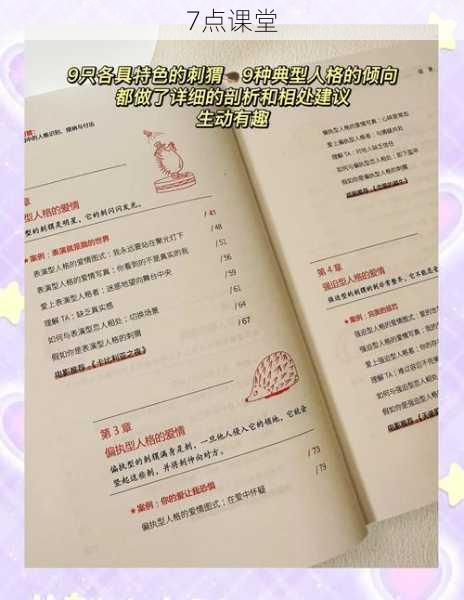 7点课堂
9只各具特色的刺猬 9种典型人格的倾向
都做了详细的剖析和相处建议
生动有趣
中的人格识别、接纳与付出
章
型人格的爱情
型的刺猬是明星，它的刺闪闪发光。
/ 41
★ 案例：表演就是我的世界
/ 48
表演型人格的爱情图式：我永远要站在聚光灯下
/ 51
表演型人格的爱情写真：你看到的不是真实的我
/ 56
爱上表演型人格者：迷惑地望的舞台中央
/ 59
理解 TA：缺乏真实感
/ 61
如何与表演型恋人相处：切换场景
/ 64
假如你是表演型人格的刺猬
/ 67
电影推荐 《卡比利亚之夜》
第 3 章
偏执型人格的爱情
偏执型的刺猬满身是刺，一旦他人侵入它的领地，它就会
竖起这些刺，并将刺伸向对方。
/ 73
★ 案例：你的爱让我恐惧
/ 79
偏执型人格的爱情图式：在爱中怀疑
偏执型人格的爱情写真：心味是常态
爱上偏执型人格者：
理解 TA：对他人缺乏信任
如何与偏执型恋人相处：
假如你是偏执型人格的刺猬
电影推荐
第 4 章
强迫型人格的爱情
强迫型的刺猬的刺非常整齐，它不能忍受
★ 案例：完美的惩罚
强迫型人格的爱情图式：爱的
强迫型人格的爱情写真：我的
爱上强迫型人格者：
理解 TA：难以容忍不完美
如何与强迫型恋人相处
假如你是强迫型人格的
电影推荐